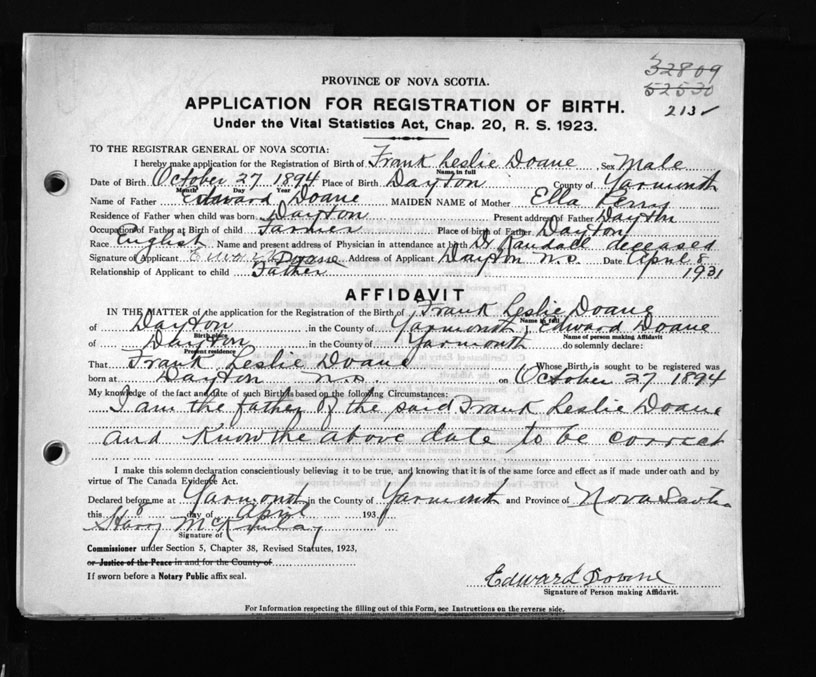 32809
52530
213 ✓
PROVINCE OF NOVA SCOTIA.
APPLICATION FOR REGISTRATION OF BIRTH.
Under the Vital Statistics Act, Chap. 20, R. S. 1923.
TO THE REGISTRAR GENERAL OF NOVA SCOTIA:
I hereby make application for the Registration of Birth of Frank Leslie Doane Sex Male
Name in full
Date of Birth October 27 1894 Place of Birth Dayton County of Yarmouth
Month Day Year
Name of Father Edward Doane MAIDEN NAME of Mother Ella Perry
Residence of Father when child was born Dayton Present address of Father Dayton
Occupation of Father at Birth of child Farmer Place of birth of Father Dayton
Race English Name and present address of Physician in attendance at birth Dr Randall deceased
Signature of Applicant Edward Doane Address of Applicant Dayton N.S. Date April 8
Relationship of Applicant to child Father 1931
AFFIDAVIT
IN THE MATTER of the application for the Registration of the Birth of Frank Leslie Doane
Name in full
of Dayton in the County of Yarmouth I, Edward Doane
Birth place Name of person making Affidavit
of Dayton in the County of Yarmouth do solemnly declare:
Present residence
That Frank Leslie Doane Whose Birth is sought to be registered was
born at Dayton N.S. on October 27 1894
My knowledge of the fact and date of such Birth is based on the following Circumstances:
I am the father of the said Frank Leslie Doane
and know the above date to be correct
I make this solemn declaration conscientiously believing it to be true, and knowing that it is of the same force and effect as if made under oath and by
virtue of The Canada Evidence Act.
Declared before me at Yarmouth in the County of Yarmouth and Province of Nova Scotia
this 8 day of April 193
Harry
Signature of
Commissioner under Section 5, Chapter 38, Revised Statutes, 1923,
or Justice of the Peace in and for the County of
If sworn before a Notary Public affix seal.
Edward Doane
Signature of Person making Affidavit.
For Information respecting the filling out of this Form, see Instructions on the reverse side.